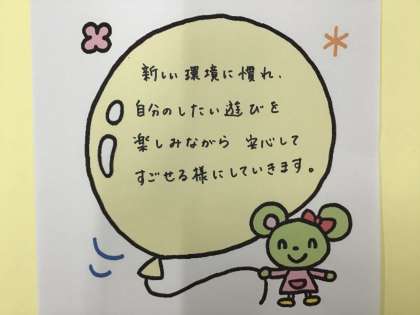 新しい環境に慣れ、
自分のしたい遊びを
楽しみながら 安心して
すごせる様にしていきます。